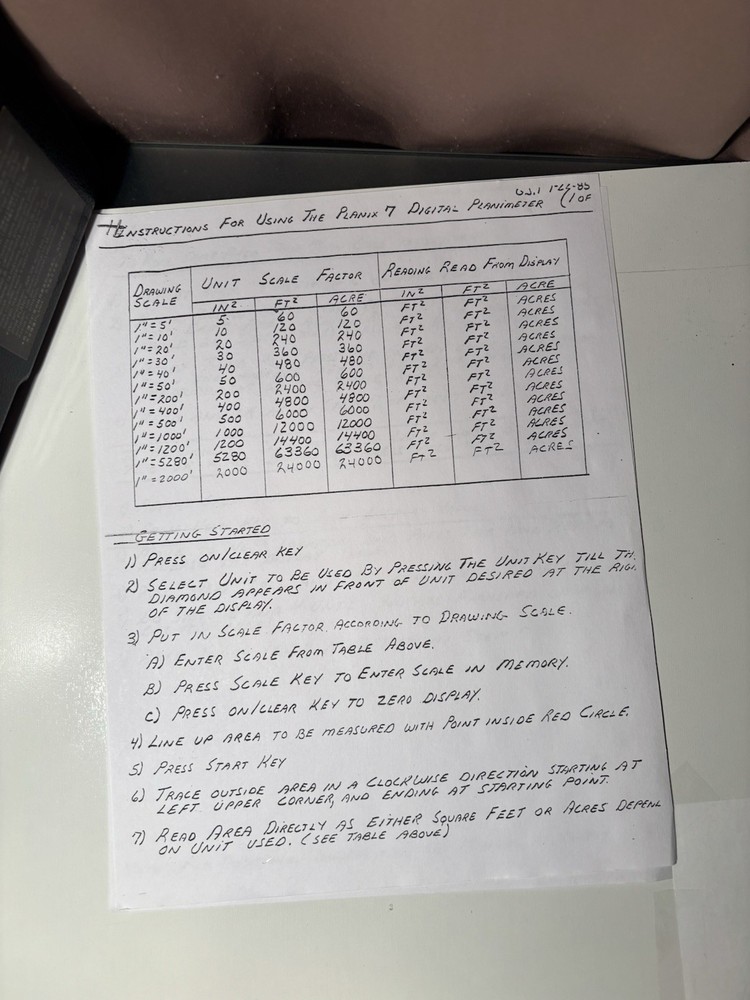 1-26-85
INSTRUCTIONS FOR USING THE PLANIX 7 DIGITAL PLANIMETER (1 OF
DRAWING SCALE UNIT SCALE FACTOR READING READ FROM DISPLAY
IN² FT² ACRE IN² FT² ACRE
1"=5' 5 60 60 FT² FT² ACRES
1"=10' 10 120 120 FT² FT² ACRES
1"=20' 20 240 240 FT² FT² ACRES
1"=30' 30 360 360 FT² FT² ACRES
1"=40' 40 480 480 FT² FT² ACRES
1"=50' 50 600 600 FT² FT² ACRES
1"=200' 200 2400 2400 FT² FT² ACRES
1"=400' 400 4800 4800 FT² FT² ACRES
1"=500' 500 6000 6000 FT² FT² ACRES
1"=1000' 1000 12000 12000 FT² FT² ACRES
1"=1200' 1200 14400 14400 FT² FT² ACRES
1"=5280' 5280 63360 63360 FT² FT² ACRES
1"=2000' 2000 24000 24000 FT² FT² ACRES
GETTING STARTED
1) PRESS ON/CLEAR KEY
2) SELECT UNIT TO BE USED BY PRESSING THE UNIT KEY TILL TH
DIAMOND APPEARS IN FRONT OF UNIT DESIRED AT THE RIG
OF THE DISPLAY.
3) PUT IN SCALE FACTOR ACCORDING TO DRAWING SCALE.
A) ENTER SCALE FROM TABLE ABOVE.
B) PRESS SCALE KEY TO ENTER SCALE IN MEMORY.
C) PRESS ON/CLEAR KEY TO ZERO DISPLAY.
4) LINE UP AREA TO BE MEASURED WITH POINT INSIDE RED CIRCLE.
5) PRESS START KEY
6) TRACE OUTSIDE AREA IN A CLOCKWISE DIRECTION STARTING AT
LEFT UPPER CORNER, AND ENDING AT STARTING POINT.
7) READ AREA DIRECTLY AS EITHER SQUARE FEET OR ACRES DEPEN
ON UNIT USED. (SEE TABLE ABOVE)